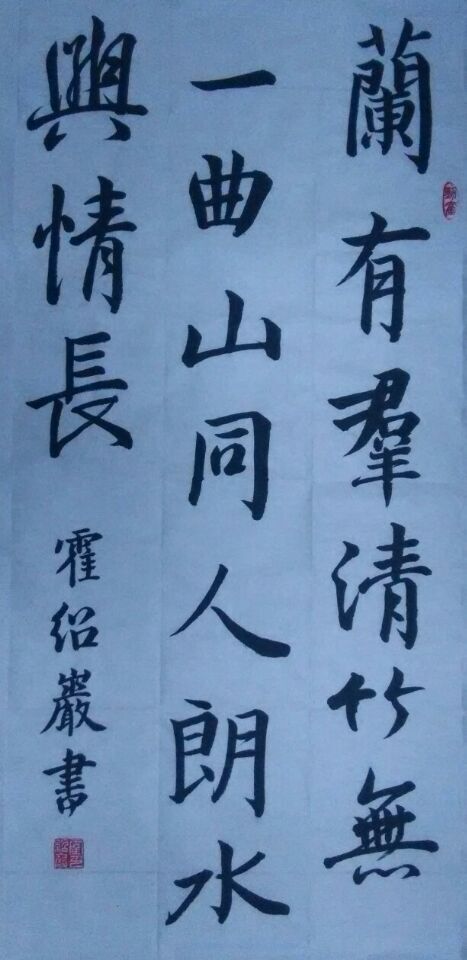 蘭有羣清竹無
一曲山同人朗水
興情長
霍紹巖書